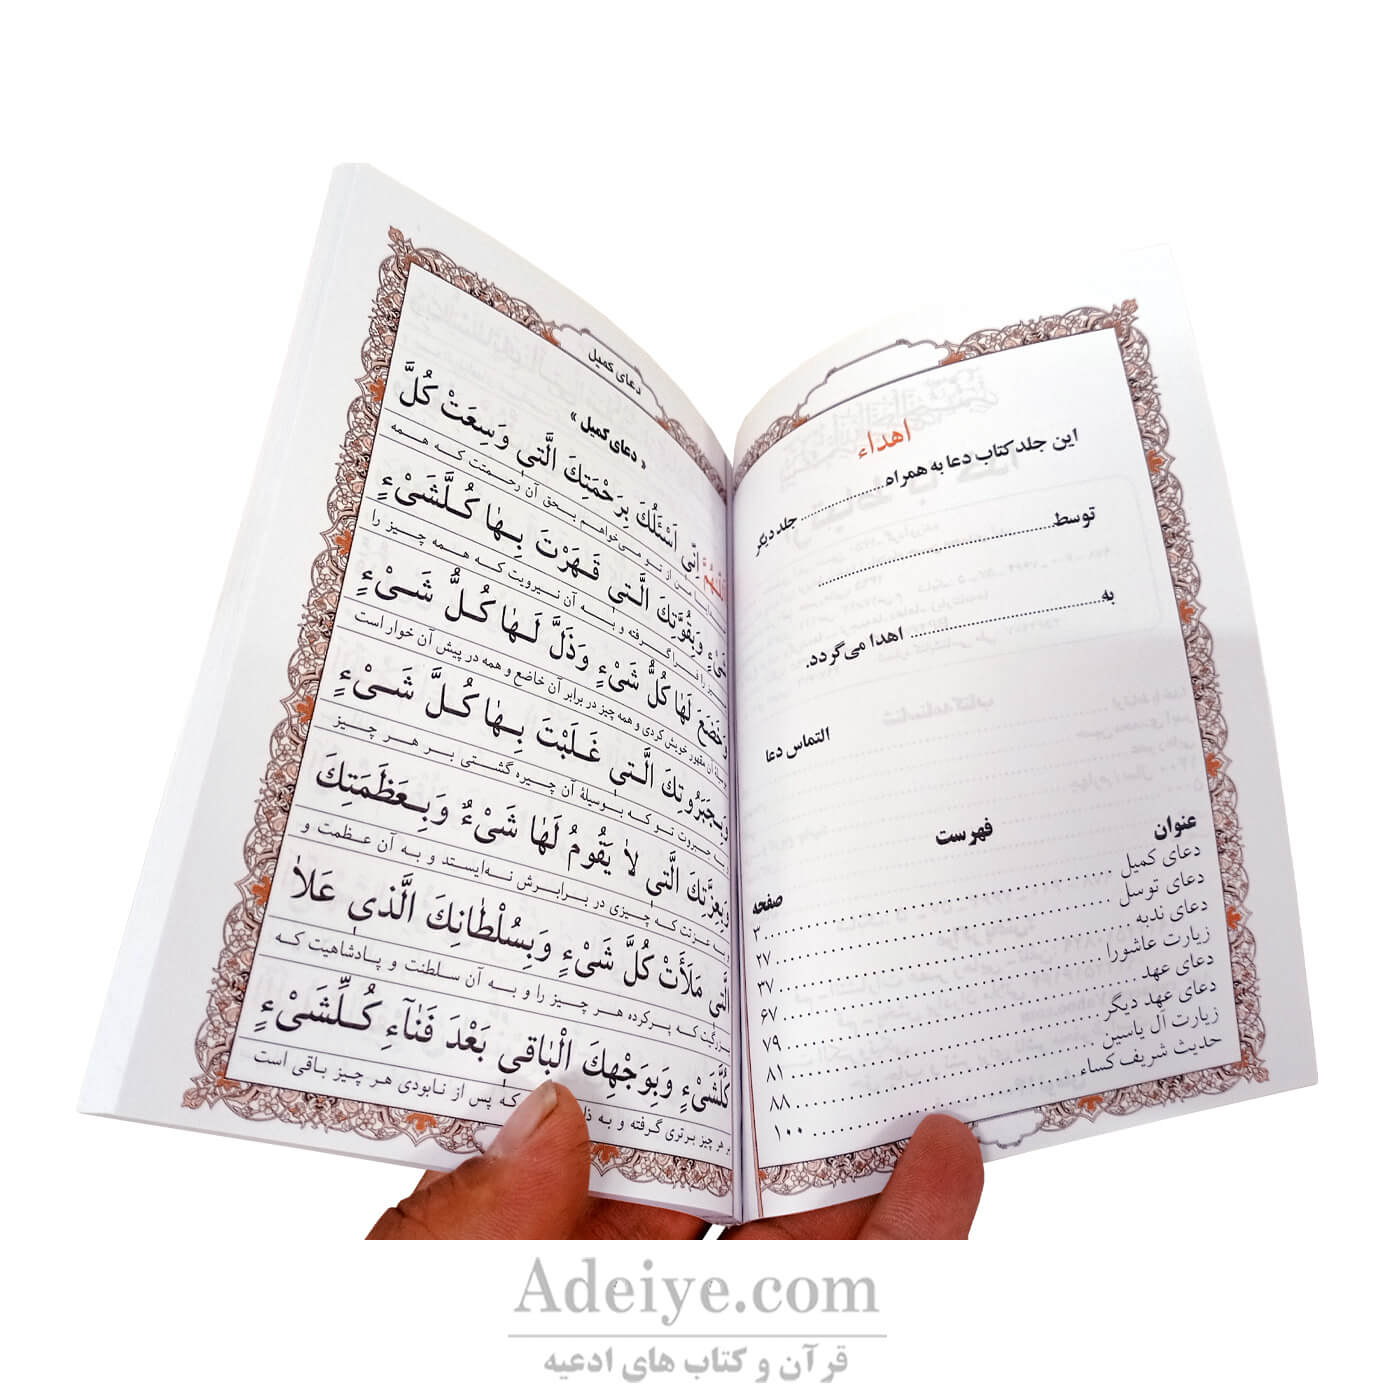 اهداء
این جلد کتاب دعا به همراه.................... جلد دیگر
توسط......................................................
به.............................. اهدا می‌گردد.
التماس دعا
فهرست
عنوان صفحه
دعای کمیل ۳
دعای توسل ۲۷
دعای ندبه ۳۷
زیارت عاشورا ۶۷
دعای عهد ۷۹
دعای عهد دیگر ۸۱
زیارت آل یاسین ۸۸
حدیث شریف کساء ۱۰۰
دعای کمیل
« دعای کمیل »
اِنّی اَسْئَلُكَ بِرَحْمَتِكَ الَّتی وَسِعَتْ كُلَّ
من از تو می‌خواهم بحق آن رحمتت که همه
شَیْءٍ وَبِقُوَّتِكَ الَّتی قَهَرْتَ بِهٰا كُلَّشَیْءٍ
چیز را فراگرفته و به آن نیرویت که همه چیز را
وَخَضَعَ لَهٰا كُلُّ شَیْءٍ وَذَلَّ لَهٰا كُلُّ شَیْءٍ
بوسیلهٔ آن مقهور خویش کردی و همه چیز در برابر آن خاضع و همه در پیش آن خوار است
وَبِجَبَرُوتِكَ الَّتی غَلَبْتَ بِهٰا كُلَّ شَیْءٍ
و به جبروت تو که بوسیلهٔ آن چیره گشتی بر هر چیز
وَبِعِزَّتِكَ الَّتی لاٰ یَقُومُ لَهٰا شَیْءٌ وَبِعَظَمَتِكَ
و به عزتت که چیزی در برابرش نه‌ایستد و به آن عظمت و
الَّتی مَلَأَتْ كُلَّ شَیْءٍ وَبِسُلْطٰانِكَ الَّذی عَلاٰ
بزرگیت که پرکرده هر چیز را و به آن سلطنت و پادشاهیت که
كُلَّشَیْءٍ وَبِوَجْهِكَ الْبٰاقی بَعْدَ فَنٰآءِ كُلِّشَیْءٍ
بر هر چیز برتری گرفته و به که پس از نابودی هر چیز باقی است
Adeiye.com
قرآن و کتاب های ادعیه